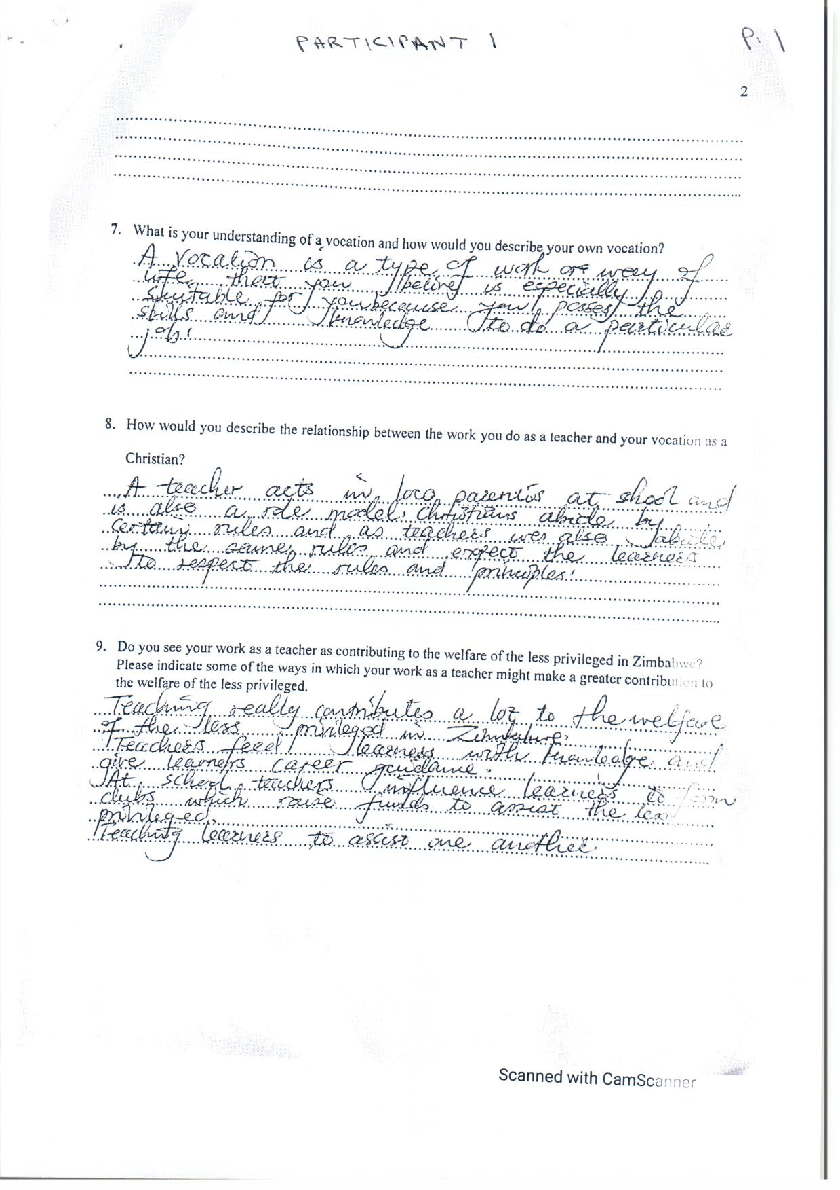 PARTICIPANT 1
P. 1
2
7. What is your understanding of a vocation and how would you describe your own vocation?
A vocation is a type of work or way of
life that you believ is especially
skuitable for you because you poses the
skills and knowledge to do a particular
job.
8. How would you describe the relationship between the work you do as a teacher and your vocation as a
Christian?
A teacher acts in loco parentis at shool and
is also a role model. Christians abide by
certain rules and as teachers we also abide
by the same rules and expect the learners
to respect the rules and principles.
9. Do you see your work as a teacher as contributing to the welfare of the less privileged in Zimbabwe?
Please indicate some of the ways in which your work as a teacher might make a greater contribution to
the welfare of the less privileged.
Teaching really contributes a lot to the welfare
of the less privileged in Zimbabwe.
Teachers feed learners with knowledge and
give learners career guidance.
At school teachers influence learners to form
clubs which raise funds to assist the less
privileged.
Teaching learners to assist one another.
Scanned with CamScanner